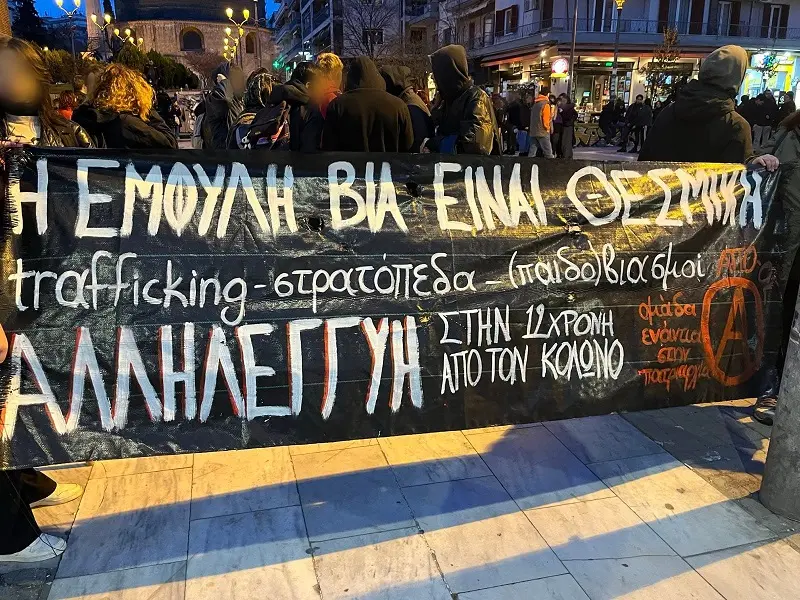 Η ΕΜΦΥΛΗ ΒΙΑ ΕΙΝΑΙ ΘΕΣΜΙΚΗ
trafficking - στρατόπεδα - (παιδο)βιασμοί
ΑΛΛΗΛΕΓΓΥΗ
ΣΤΗΝ 12ΧΡΟΝΗ
ΑΠΟ ΤΟΝ ΚΟΛΩΝΟ
ΑΠΟ
ομάδα
ενάντια
στην
πατριαρχία